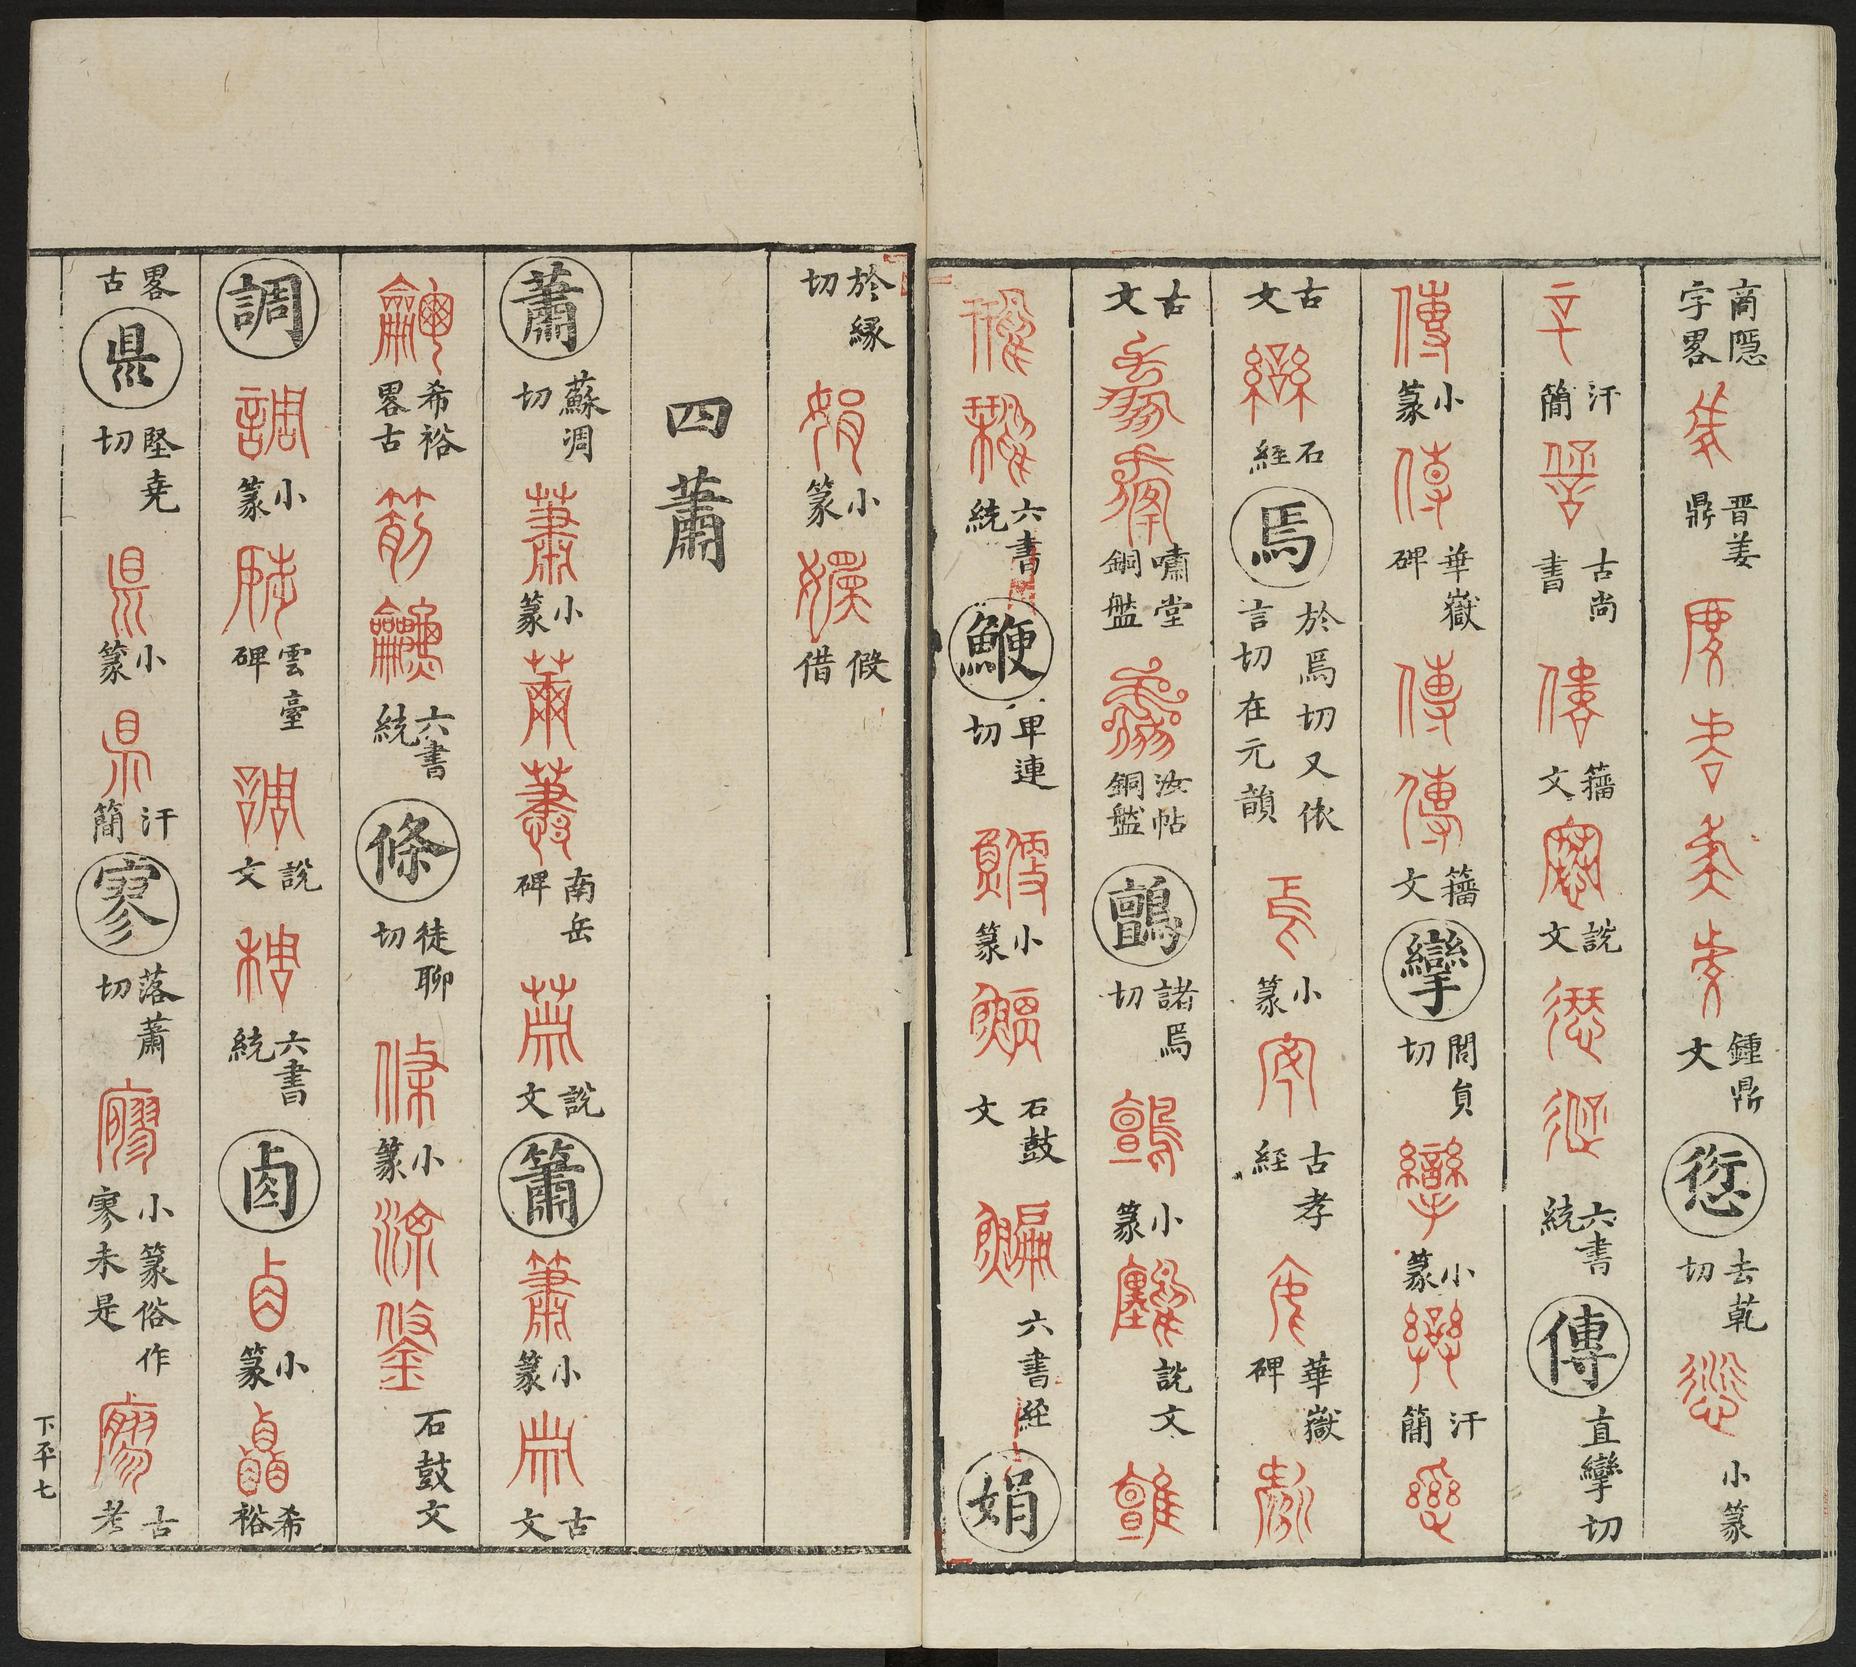 商隱字畧 晋姜鼎 鍾鼎文 愆 去乾切 小篆
汗簡 古尚書 籒文 說文 六書統 傳 直攣切
小篆 華嶽碑 籒文 攣 閭負切 小篆 汗簡
古文 石經 焉 於焉切又依言切在元韻 小篆 古孝經 華嶽碑
古文 嘯堂銅盤 汝帖銅盤 鸇 諸焉切 小篆 說文
六書統 鯾 卑連切 小篆 石鼓文 六書經 娟
於緣切 小篆 假借
四蕭
蕭 蘇凋切 小篆 南岳碑 說文 簫 小篆 古文
希裕畧古 六書統 條 徒聊切 小篆 石鼓文
調 小篆 雲臺碑 說文 六書統 卤 小篆 希裕
畧古 県 堅堯切 小篆 汗簡 寥 落蕭切 小篆俗作寥未是 古老
下平七